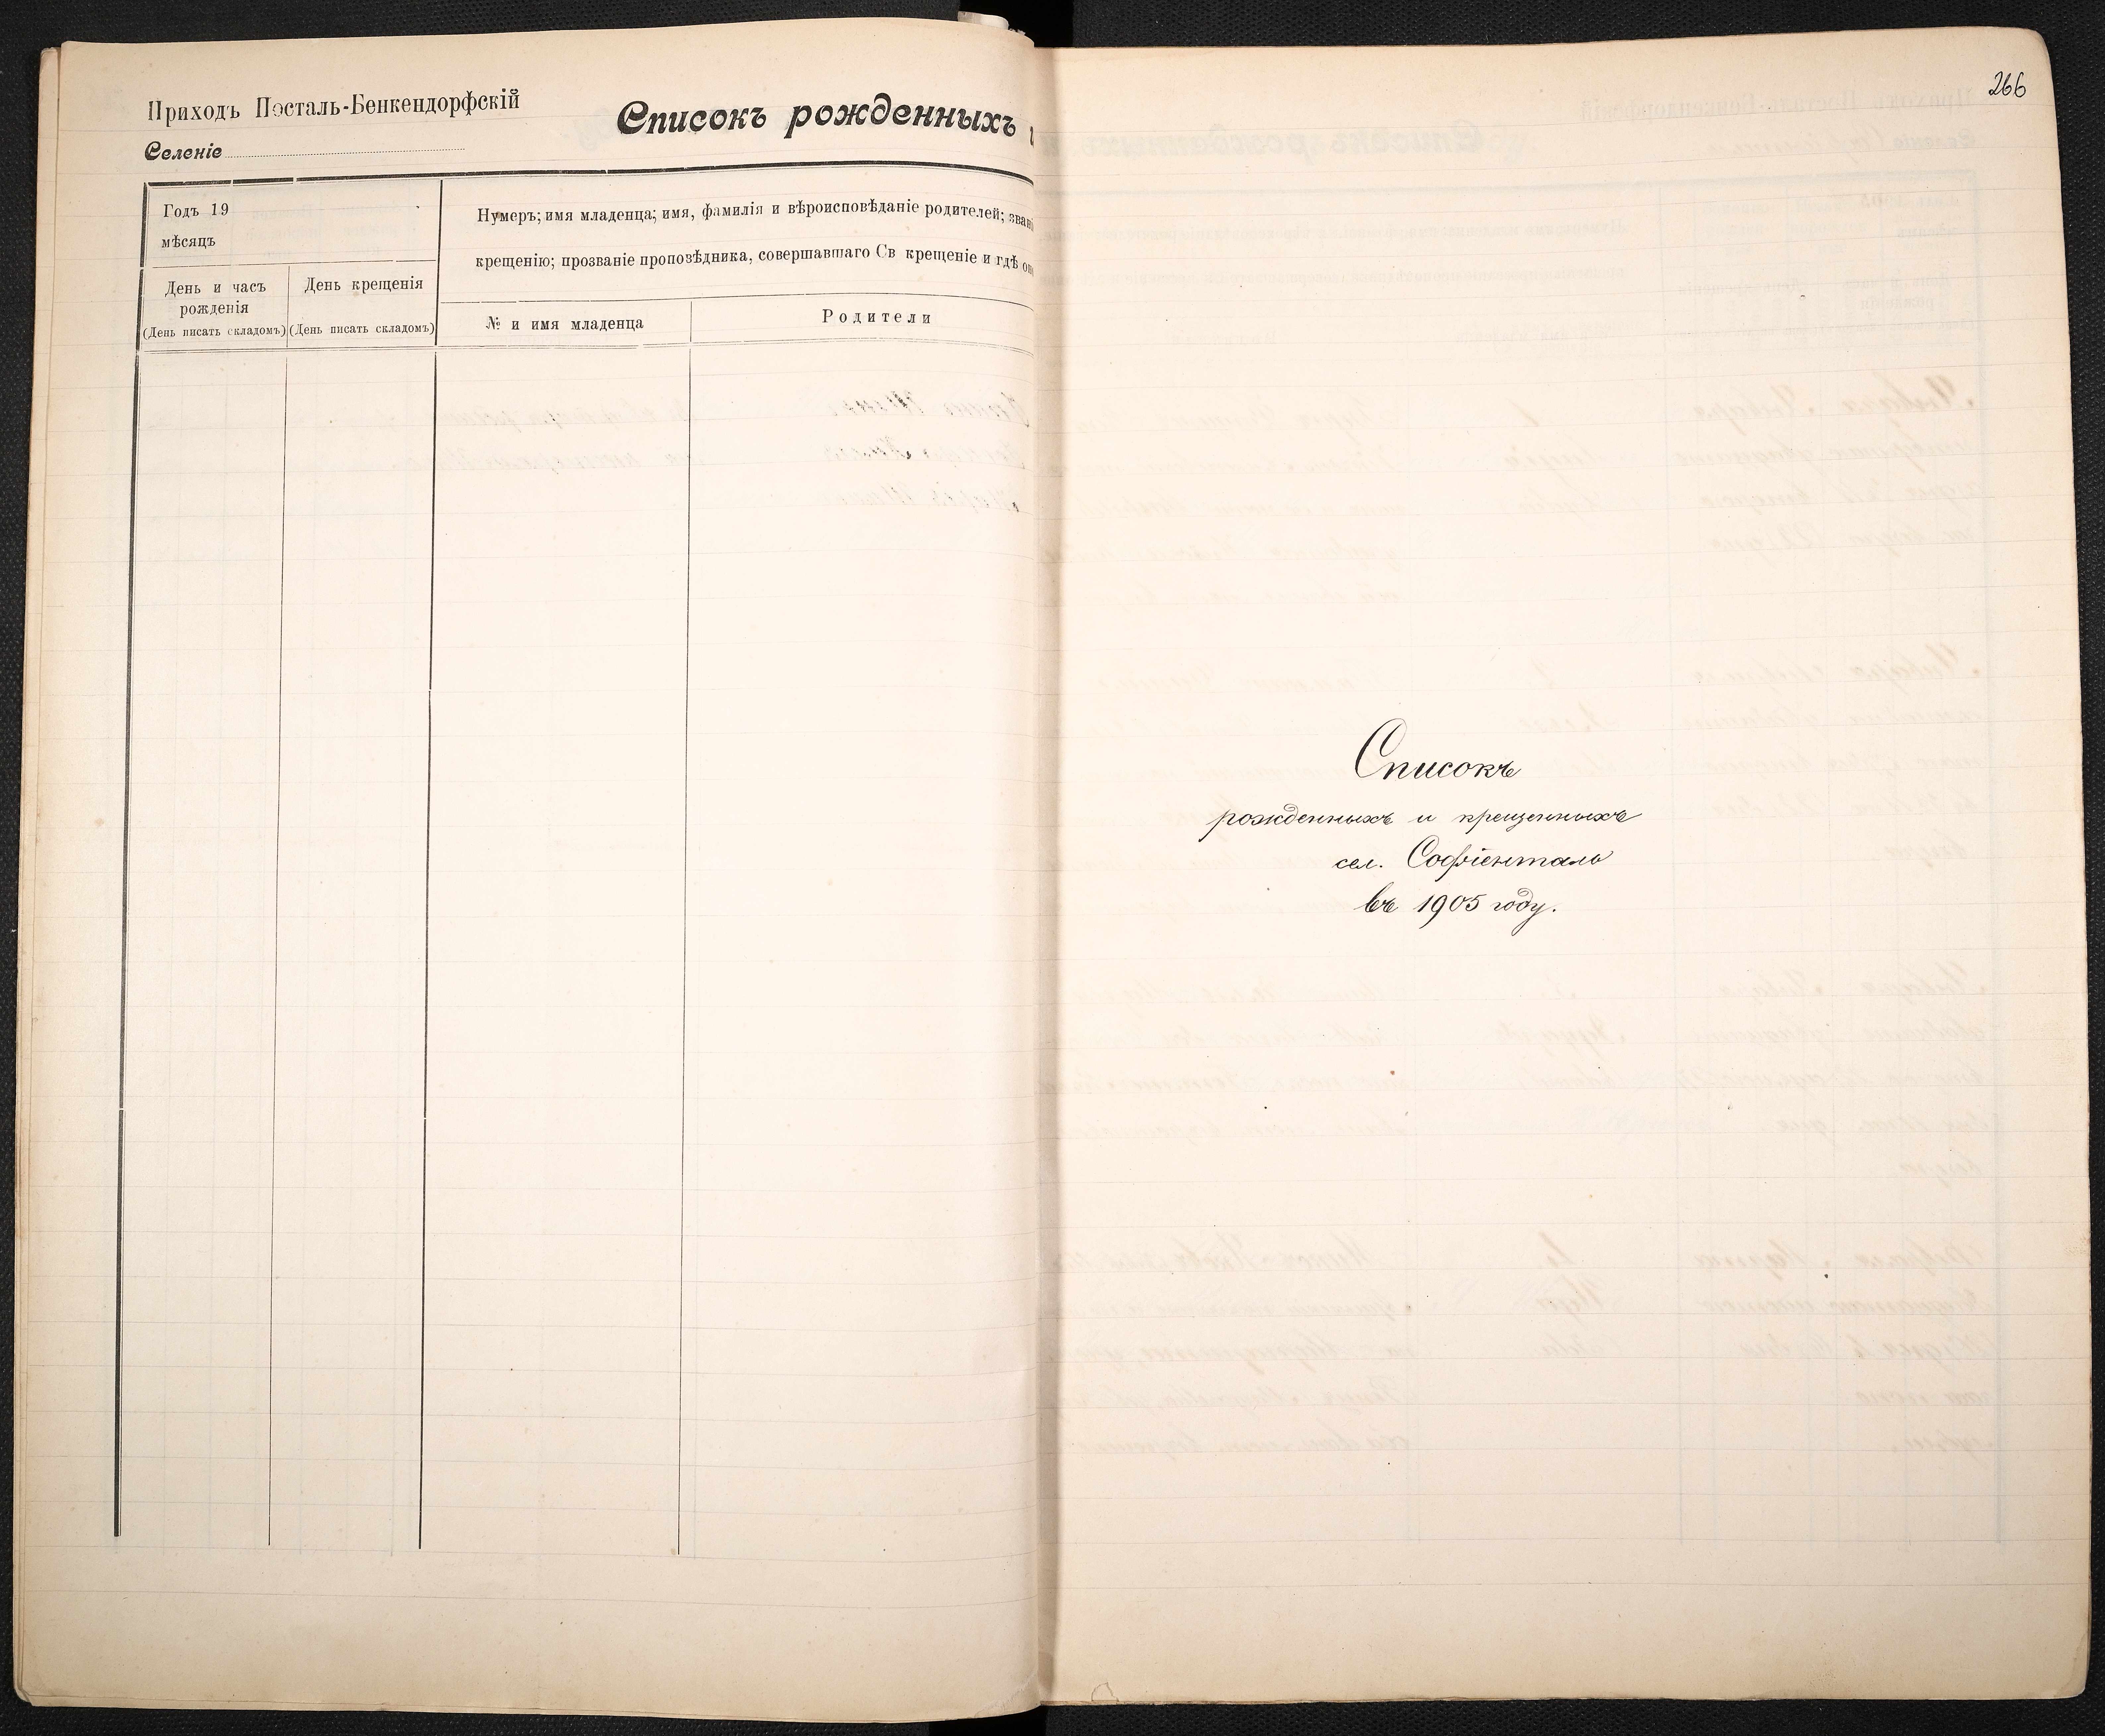 Приходъ Посталь-Бенкендорфскій
Селеніе
Списокъ рожденныхъ
Годъ 19
мѣсяцъ
День и часъ
рожденія
(День писать складомъ)
День крещенія
(День писать складомъ)
Нумеръ; имя младенца; имя, фамилія и вѣроисповѣданіе родителей;
крещенію; прозваніе проповѣдника, совершавшаго Св крещеніе и гдѣ
№ и имя младенца
Родители
266
Списокъ
рожденныхъ и крещенныхъ
сел. Софіенталь
въ 1905 году.